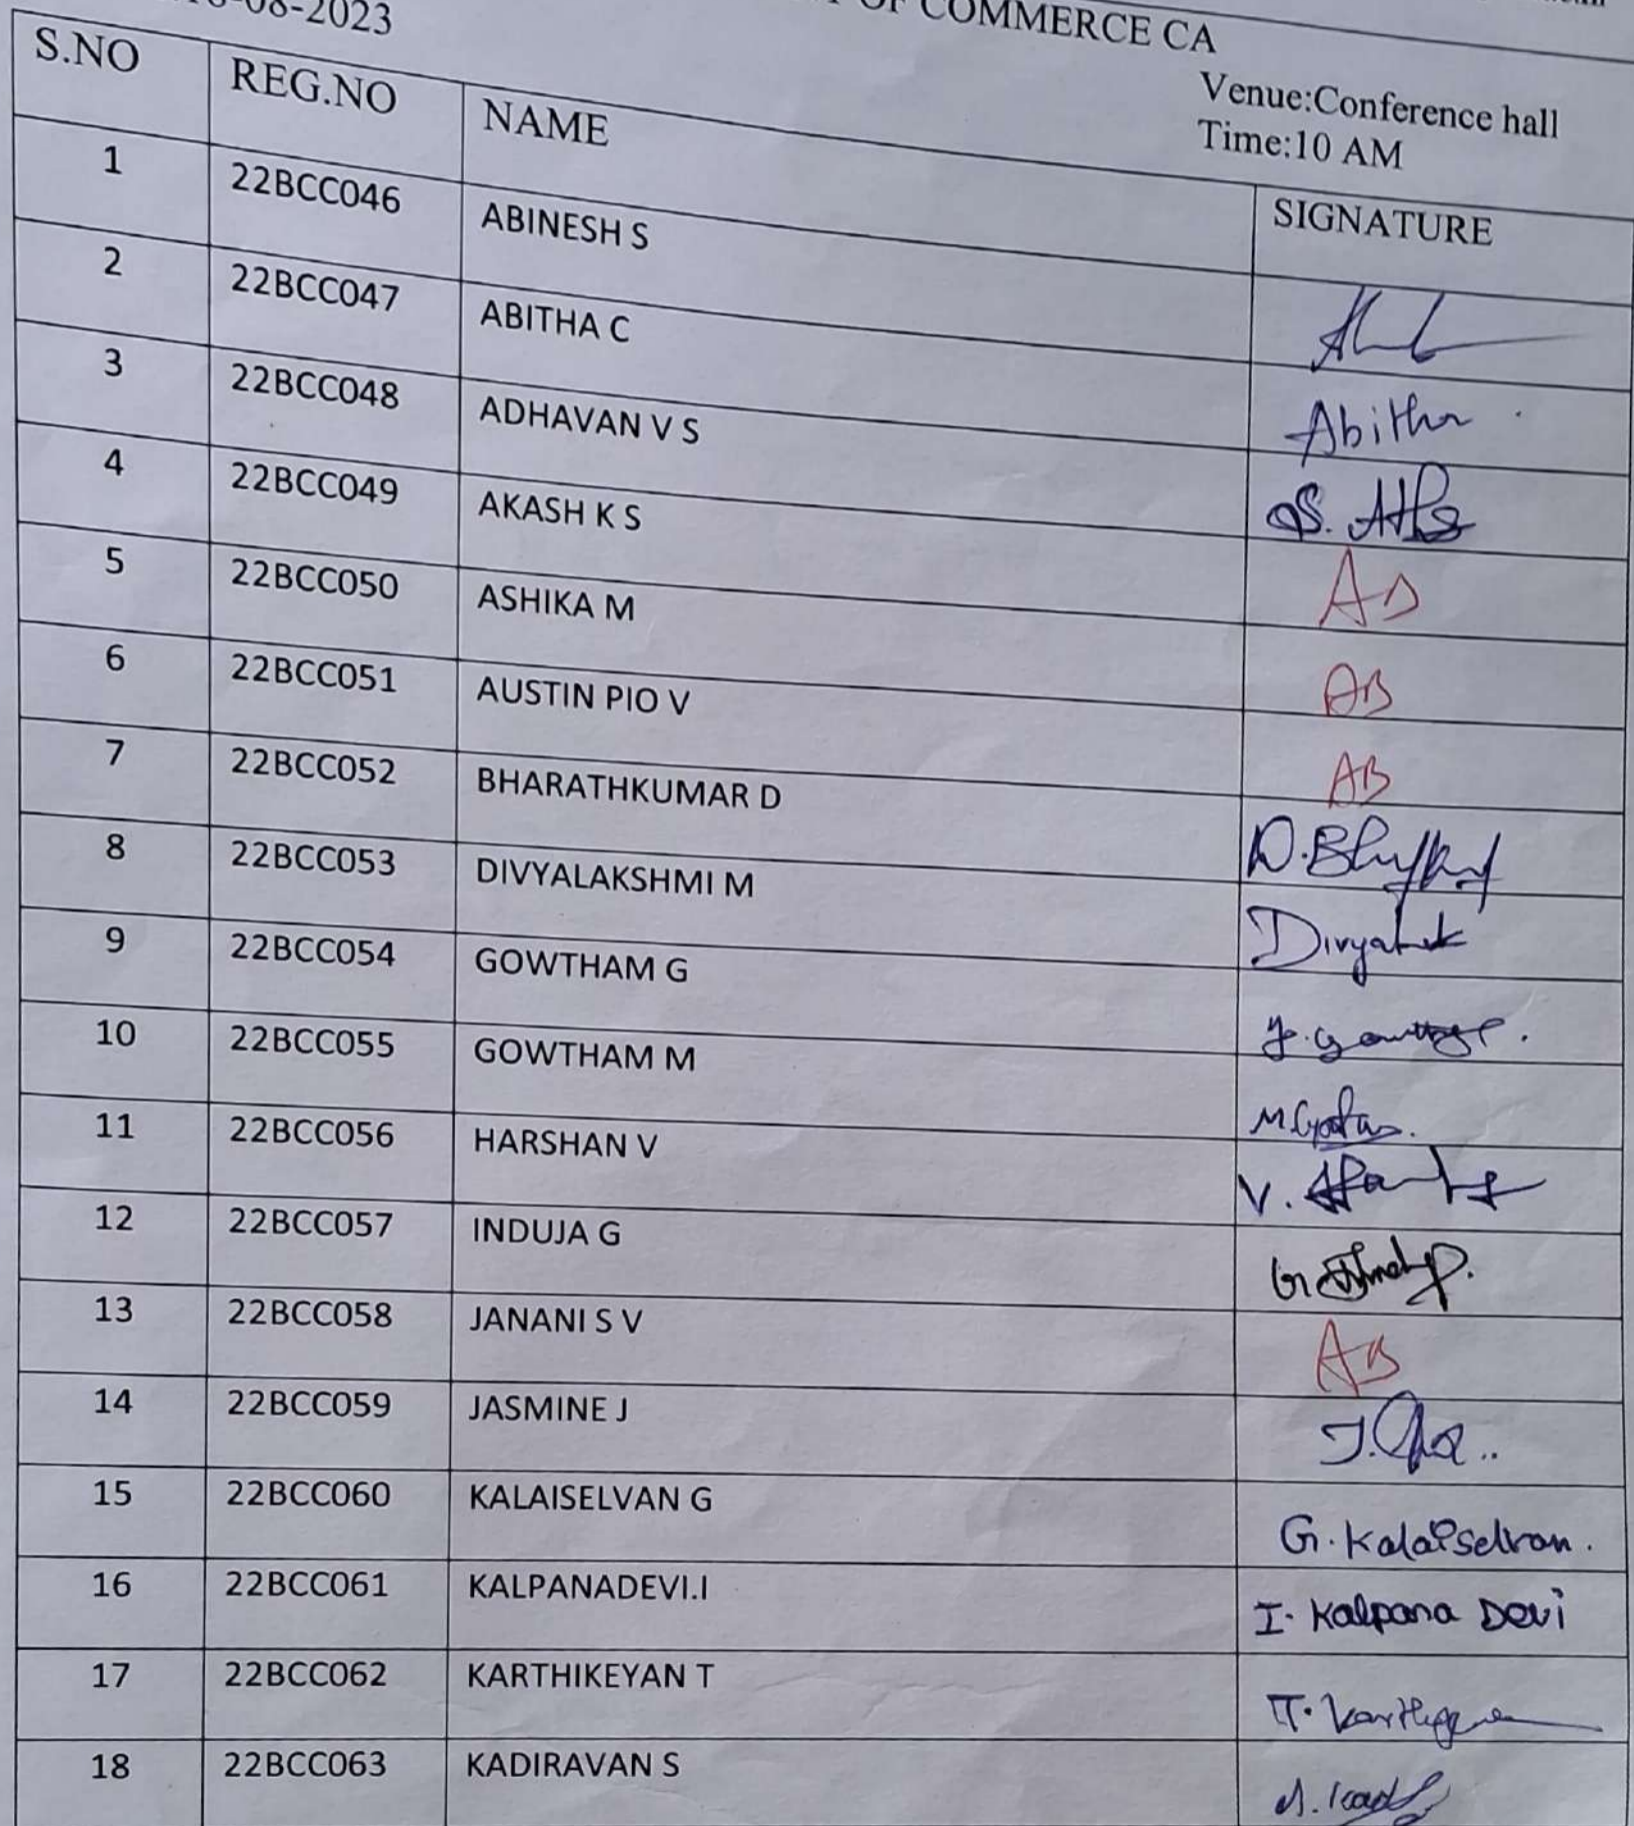 -08-2023
OF COMMERCE CA
Venue:Conference hall
Time:10 AM
S.NO REG.NO NAME SIGNATURE
1 22BCC046 ABINESH S
2 22BCC047 ABITHA C Abitha
3 22BCC048 ADHAVAN V S
4 22BCC049 AKASH K S AB
5 22BCC050 ASHIKA M AB
6 22BCC051 AUSTIN PIO V AB
7 22BCC052 BHARATHKUMAR D
8 22BCC053 DIVYALAKSHMI M
9 22BCC054 GOWTHAM G
10 22BCC055 GOWTHAM M
11 22BCC056 HARSHAN V
12 22BCC057 INDUJA G
13 22BCC058 JANANI S V AB
14 22BCC059 JASMINE J
15 22BCC060 KALAISELVAN G G. Kalaiselvan.
16 22BCC061 KALPANADEVI.I I. Kalpana Devi
17 22BCC062 KARTHIKEYAN T
18 22BCC063 KADIRAVAN S